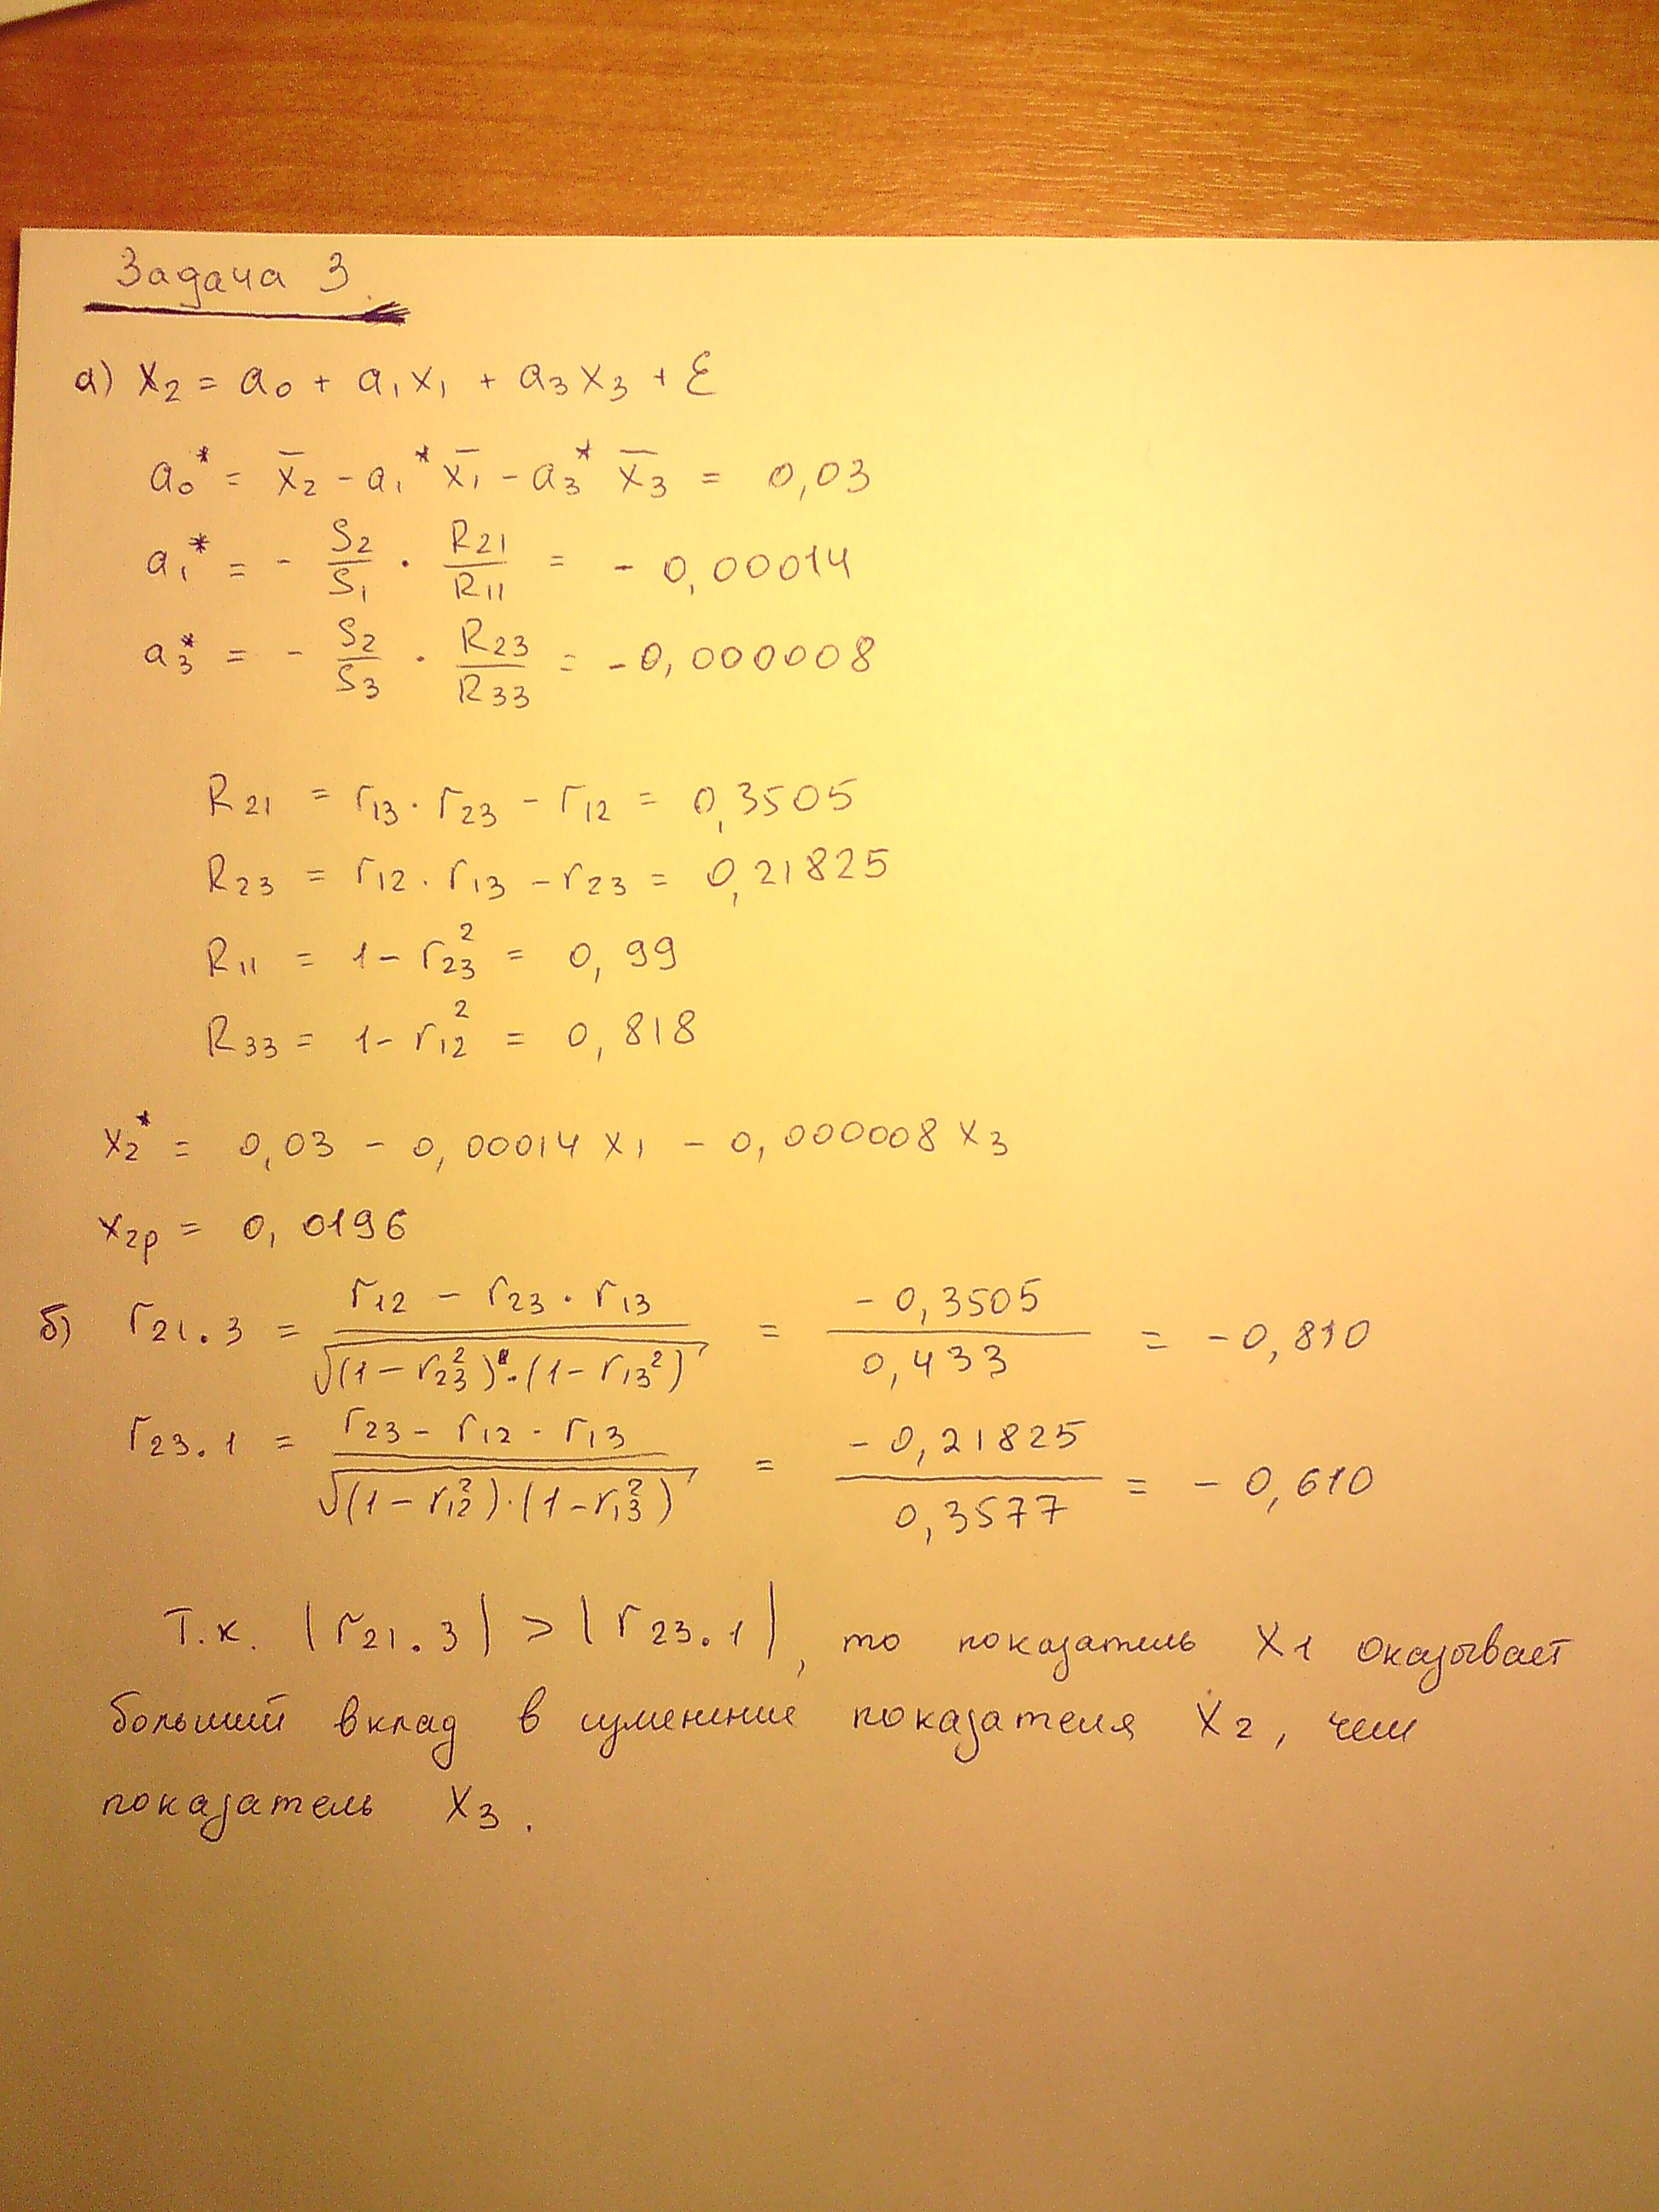 Задача 3.
а) x₂ = a₀ + a₁x₁ + a₃x₃ + ε
a₀* = x̄₂ - a₁* x̄₁ - a₃* x̄₃ = 0,03
a₁* = - S₂/S₁ · R₂₁/R₁₁ = - 0,00014
a₃* = - S₂/S₃ · R₂₃/R₃₃ = -0,000008
R₂₁ = r₁₃ · r₂₃ - r₁₂ = 0,3505
R₂₃ = r₁₂ · r₁₃ - r₂₃ = 0,21825
R₁₁ = 1 - r₂₃² = 0,99
R₃₃ = 1 - r₁₂² = 0,818
x₂* = 0,03 - 0,00014 x₁ - 0,000008 x₃
x₂ₚ = 0,0196
б) r₂₁.₃ = (r₁₂ - r₂₃ · r₁₃)/√((1 - r₂₃²) · (1 - r₁₃²)) = -0,3505/0,433 = -0,810
r₂₃.₁ = (r₂₃ - r₁₂ · r₁₃)/√((1 - r₁₂²) · (1 - r₁₃²)) = -0,21825/0,3577 = -0,610
Т.к. |r₂₁.₃| > |r₂₃.₁|, то показатель X₁ оказывает
больший вклад в изменение показателя X₂, чем
показатель X₃.